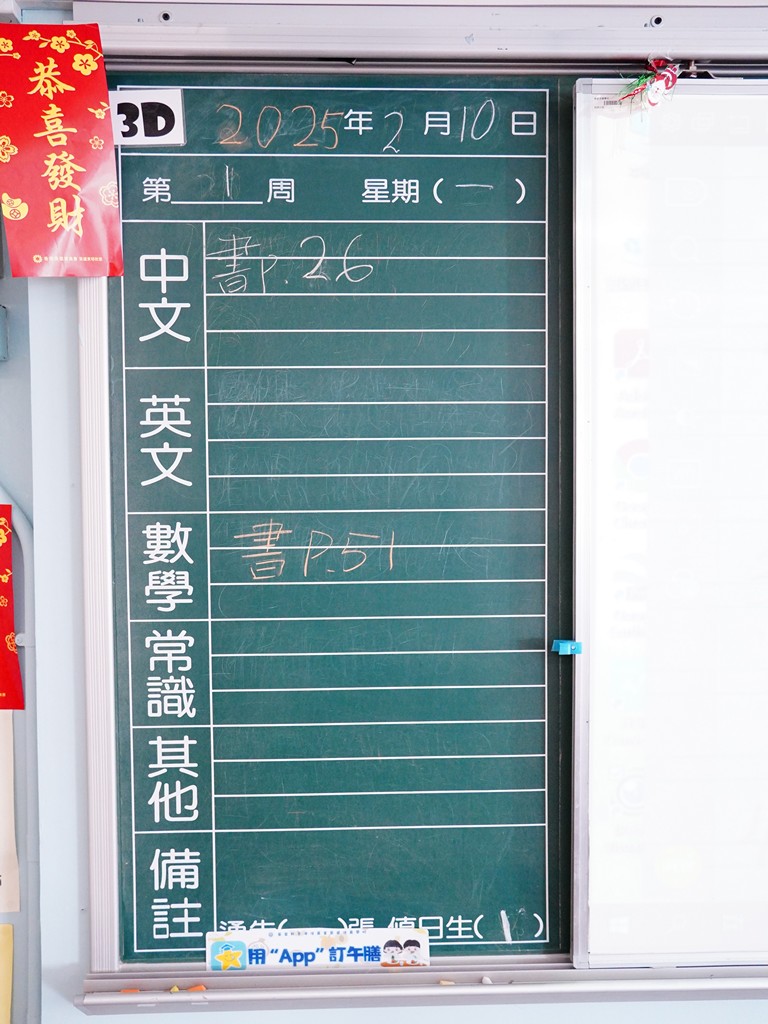 恭喜發財
3D
2025年2月10日
第 1 周 星期(一)
中文 書P.26
英文
數學 書P.51
常識
其他
備註
通告( )張 值日生(1)
用“App”訂午膳